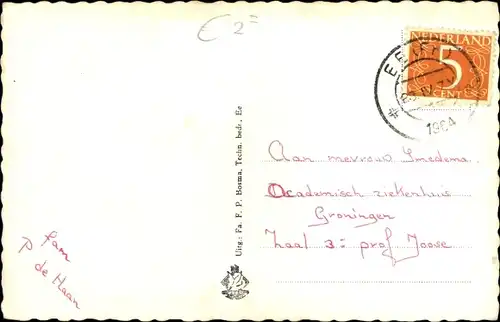 € 2=
NEDERLAND
5
CENT
1964
Aan mevrouw Smedema
Academisch ziekenhuis
Groningen
Zaal 3= prof Joose
fam
P de Haan
Uitg.: Fa. F. P. Bosma, Techn. bedr., Ee